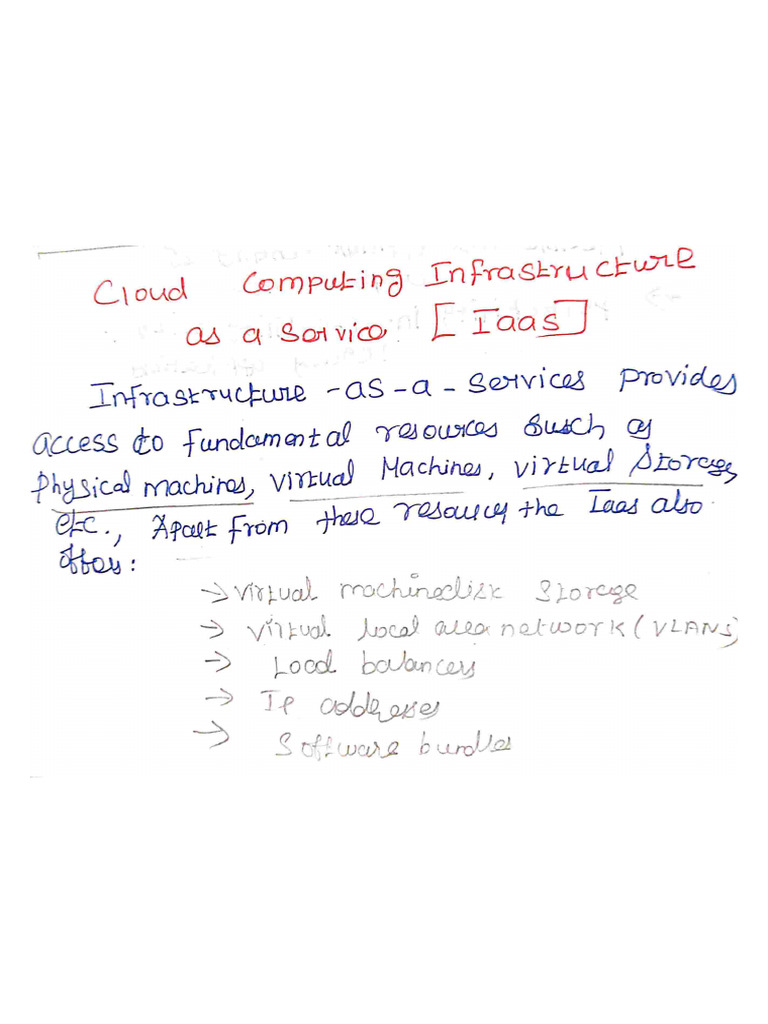 Cloud Computing Infrastructure
as a Service [Iaas]
Infrastructure -as-a-services provides
access to fundamental resources susch as
physical machines, virtual Machines, virtual Storage,
etc., Apart from these resources the Iaas also
offers:
→ virtual machinedisk storage
→ virtual local area network (VLANS)
→ Load balancers
→ IP addresses
→ Software bundles